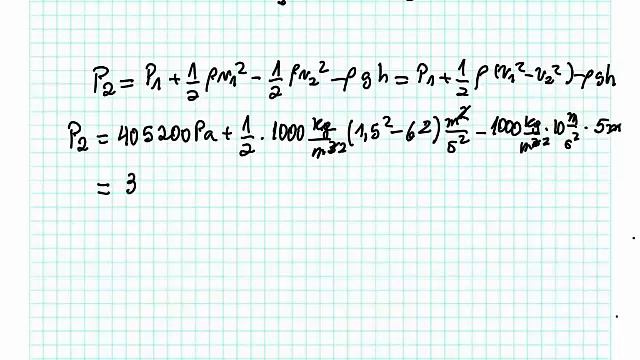 P₂ = P₁ + 1/2 ρv₁² - 1/2 ρv₂² - ρgh = P₁ + 1/2 ρ(v₁² - v₂²) - ρgh
P₂ = 405200Pa + 1/2 · 1000 kg/m³² (1,5² - 6²) m²/s² - 1000 kg/m³² · 10 m/s² · 5m
= 3